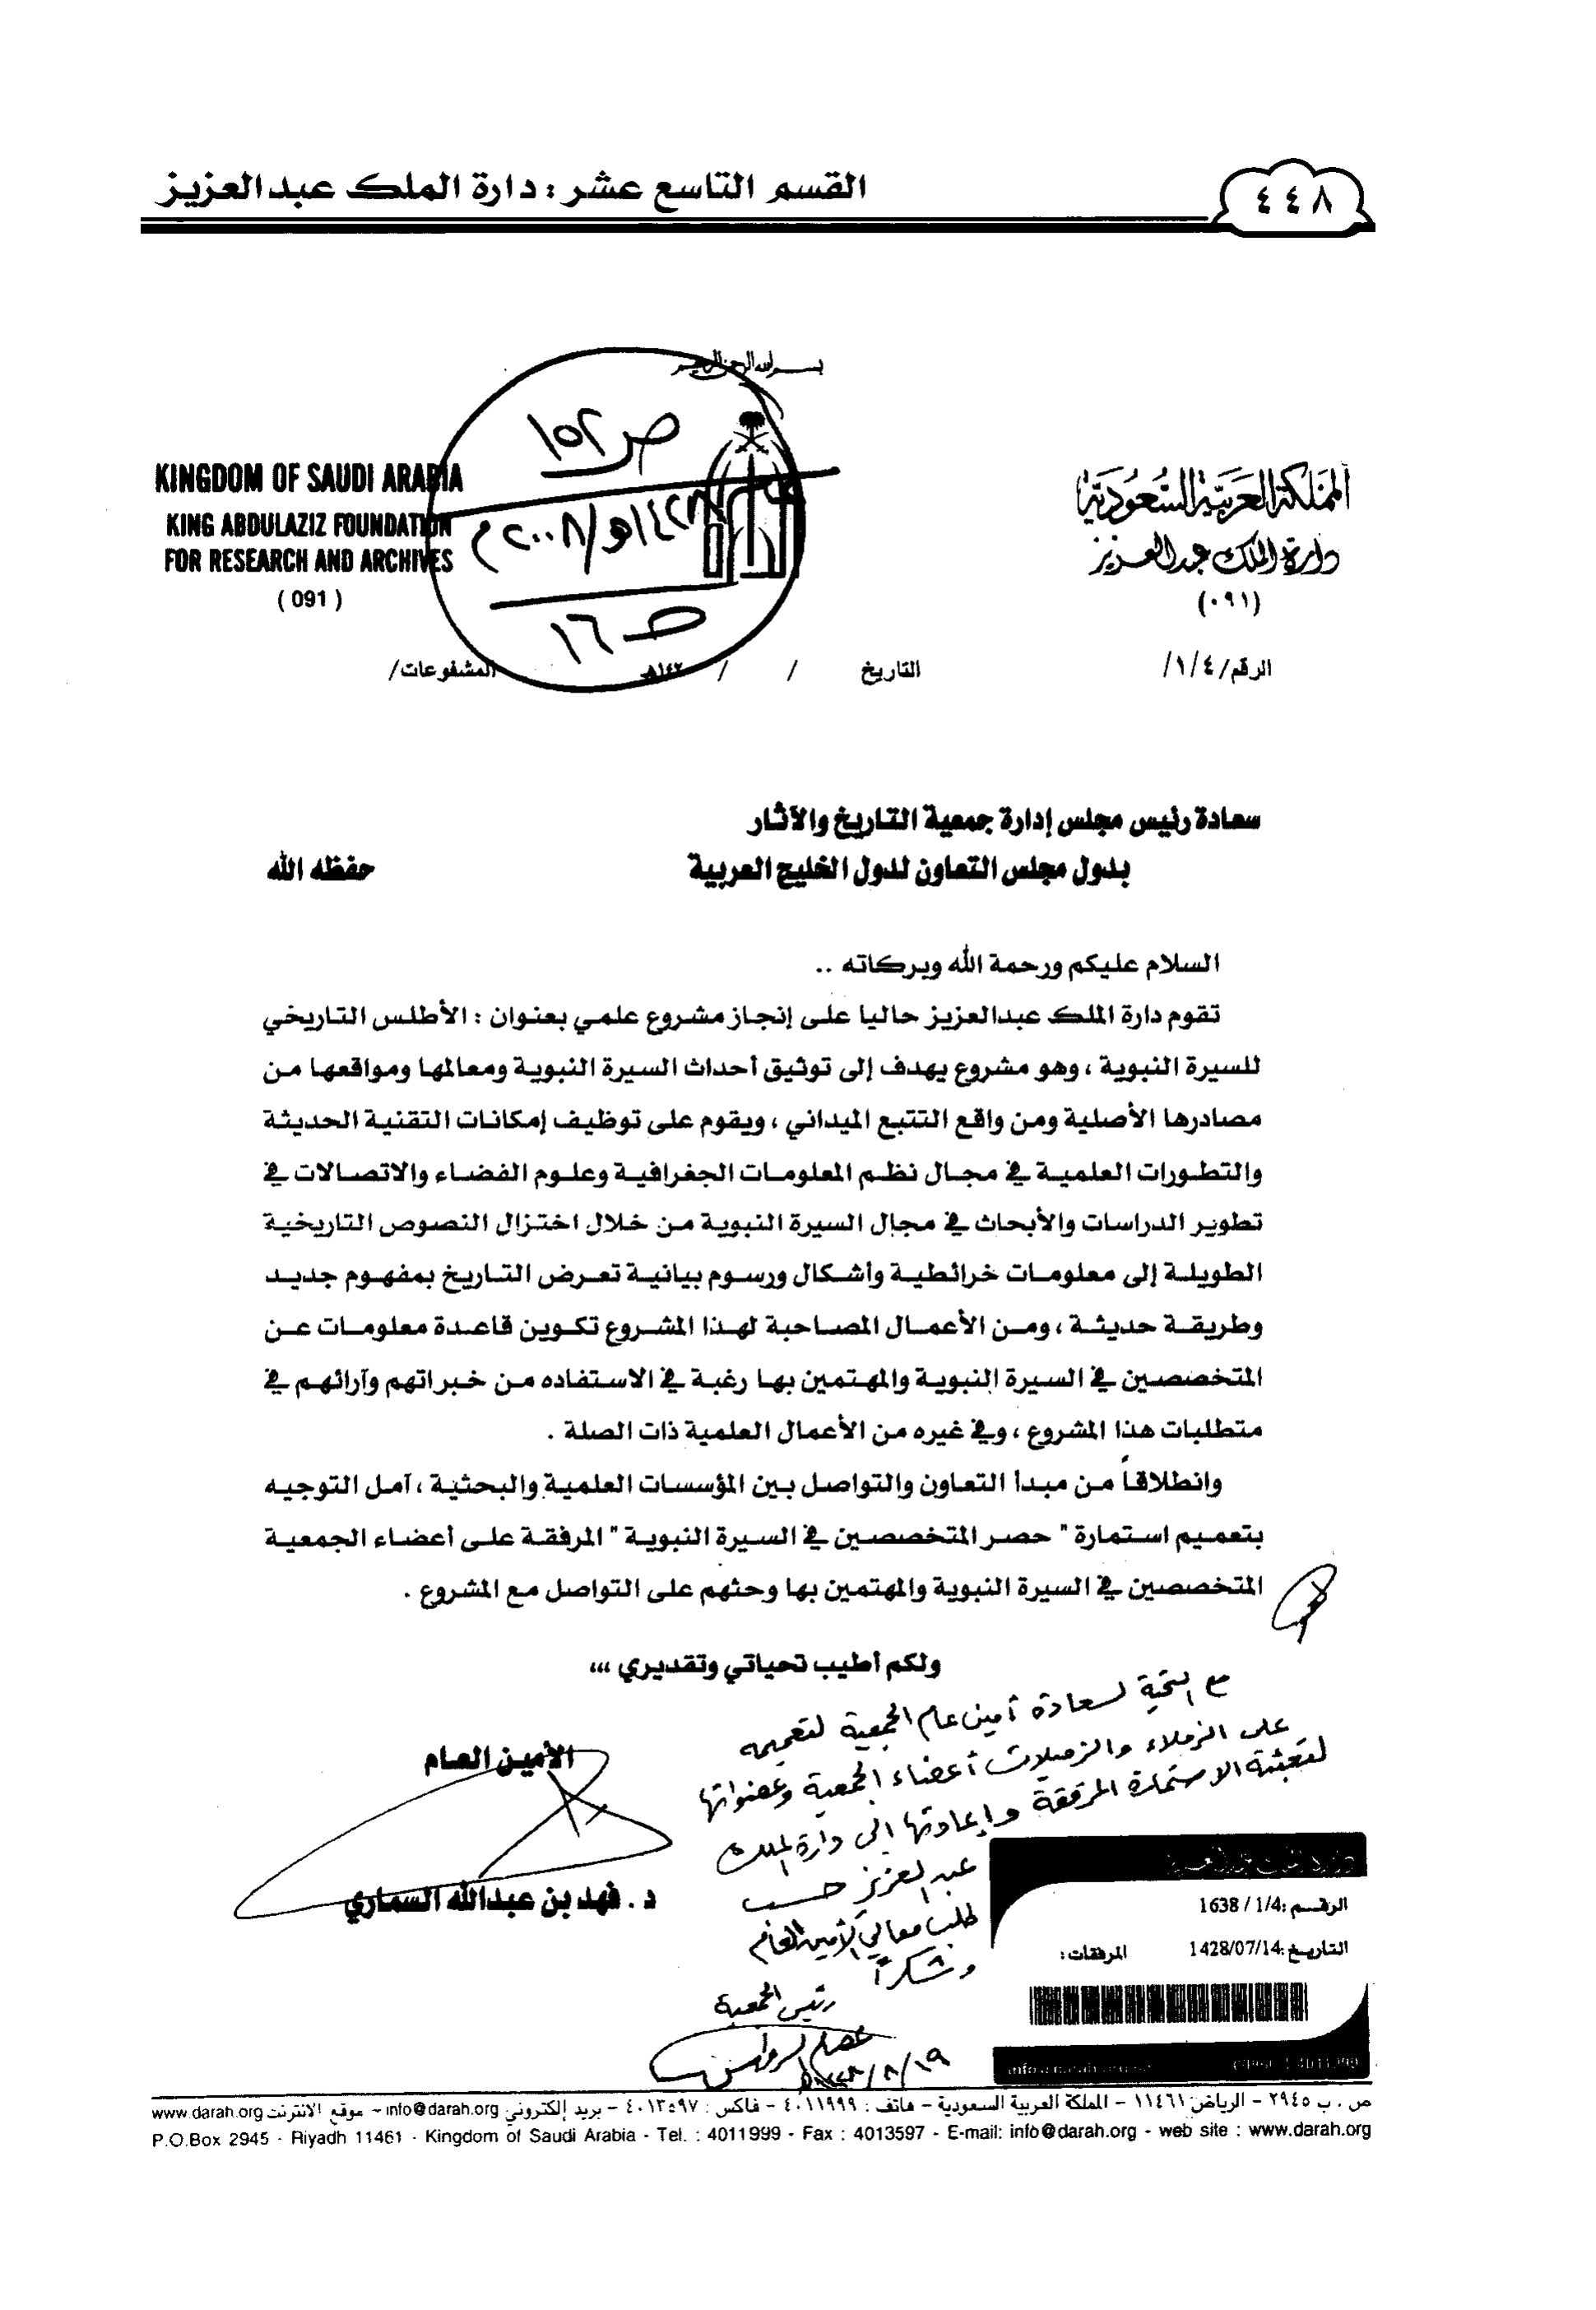 ٤٤٨
القسم التاسع عشر : دارة الملك عبدالعزيز
بسم الله الرحمن الرحيم
المملكة العربية السعودية
دارة الملك عبد العزيز
(٠٩١)
KINGDOM OF SAUDI ARABIA
KING ABDULAZIZ FOUNDATION
FOR RESEARCH AND ARCHIVES
( 091 )
ص ١٥٢
١٤٢٨هـ/٢٠٠٨م
ص ١٦
الرقم/١/٤/ التاريخ / / ١٤٢هـ المشفوعات/
سعادة رئيس مجلس إدارة جمعية التاريخ والآثار
بدول مجلس التعاون لدول الخليج العربية حفظه الله
السلام عليكم ورحمة الله وبركاته ..
تقوم دارة الملك عبدالعزيز حاليا على إنجاز مشروع علمي بعنوان : الأطلس التاريخي
للسيرة النبوية ، وهو مشروع يهدف إلى توثيق أحداث السيرة النبوية ومعالمها ومواقعها من
مصادرها الأصلية ومن واقع التتبع الميداني ، ويقوم على توظيف إمكانات التقنية الحديثة
والتطورات العلمية في مجال نظم المعلومات الجغرافية وعلوم الفضاء والاتصالات في
تطوير الدراسات والأبحاث في مجال السيرة النبوية من خلال اختزال النصوص التاريخية
الطويلة إلى معلومات خرائطية وأشكال ورسوم بيانية تعرض التاريخ بمفهوم جديد
وطريقة حديثة ، ومن الأعمال المصاحبة لهذا المشروع تكوين قاعدة معلومات عن
المتخصصين في السيرة النبوية والمهتمين بها رغبة في الاستفاده من خبراتهم وآرائهم في
متطلبات هذا المشروع ، وفي غيره من الأعمال العلمية ذات الصلة .
وانطلاقاً من مبدأ التعاون والتواصل بين المؤسسات العلمية والبحثية ، آمل التوجيه
بتعميم استمارة " حصر المتخصصين في السيرة النبوية " المرفقة على أعضاء الجمعية
المتخصصين في السيرة النبوية والمهتمين بها وحثهم على التواصل مع المشروع .
ولكم أطيب تحياتي وتقديري ،،،
مع التحية لسعادة أمين عام الجمعية لتعميمه
على الزملاء والزميلات أعضاء الجمعية وعضواتها
لتعبئة الاستمارة المرفقة وإعادتها إلى دارة الملك
عبدالعزيز حسب
طلب معالي الأمين العام
وشكراً
رئيس الجمعية
١٩/٨/١٤٢٨هـ
الأمين العام
د . فهد بن عبدالله السماري
دارة الملك عبدالعزيز
الرقم: 1/4 / 1638
التاريخ: 1428/07/14 المرفقات:
ص . ب ٢٩٤٥ – الرياض ١١٤٦١ – المملكة العربية السعودية – هاتف : ٤٠١١٩٩٩ – فاكس : ٤٠١٣٥٩٧ – بريد إلكتروني info@darah.org – موقع الانترنت www.darah.org
P.O.Box 2945 - Riyadh 11461 - Kingdom of Saudi Arabia - Tel. : 4011999 - Fax : 4013597 - E-mail: info@darah.org - web site : www.darah.org